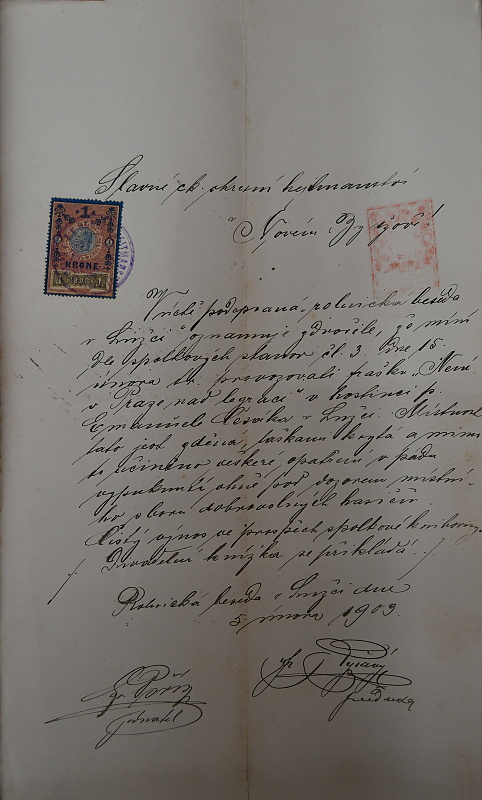 Slavné ck. okresní hejtmanství
v Novém Bydžově!
1
KRONE
1898
Uctivě podepsaná rolnická beseda
v Lužci oznamuje zdvořile, že míní
dle spolkových stanov čl. 3. dne 15.
února t.r. provozovati frašku „Není
v Praze nad legraci" v hostinci p.
Emanuele v Lužci. Místnost
tato jest zděná, taškami krytá a mimo
to učiněno veškeré opatření v pádu
vypuknutí ohně pod dozorem místní-
ho sboru dobrovolných hasičů
Čistý výnos ve prospěch spolkové knihovny.
/ Divadelní knížka se přikládá. /
Rolnická beseda v Lužci dne
5. února 1903.
jednatel
předseda